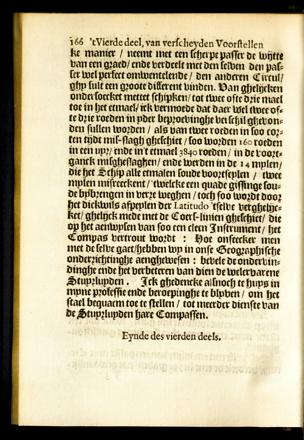 166 'tVierde deel, van verscheyden Voorstellen
ke manier / neemt met een scherpe passer de wijtte
van een graed/ ende verdeelt met den selden den pas-
ser wel perfect omwentelende / den anderen Circul/
ghy sult een groote different vinden. Van ghelijcken
ondersoecket metter schipken / tot twee ofte drie mael
toe in het etmael / ick vermoede dat daer wel twee of-
te drie roeden in yder beproevinghe verschil ghevon-
den sullen worden / als van twee roeden in soo cor-
ten tijdt mis-slagh gheschiet / soo worden 160 roeden
in een uyr/ ende in't etmael 3840 roeden / in de voort-
ganck misghestaghen/ ende werden in de 14 mylen/
die het Schip alle etmalen soude voortseylen / twee
mylen misreeckent/ 'twelcke een quade gissinge sou-
de bybrengen in verr' weghen / toch soo wordt door
het dickwils afpeylen der Latitudo 'tselve verghelijc-
ket/ ghelijck mede met de Coers-linien gheschiet/ die
op het aenwysen van soo een cleen Instrument / het
Compas vertrout wordt : Hoe onseecker men
met de selve gaet/hebben wy in onse Geographische
onderrichtinghe aenghewesen : bevele de ondervin-
dinghe ende het verbeteren van dien de welervarene
Stuyrluyden. Ick ghedencke alnoch te huys in
myne professie ende beroepinghe te blyven / om het
stael bequaem toe te stellen / tot meerder dienste van
de Stuyrluyden hare Compassen.
Eynde des vierden deels.